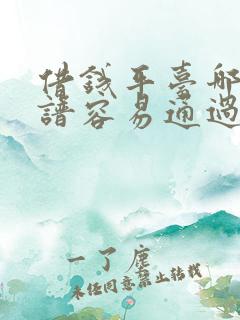 借錢平臺那
譜容易通過
一了塵
未经同意禁止转载